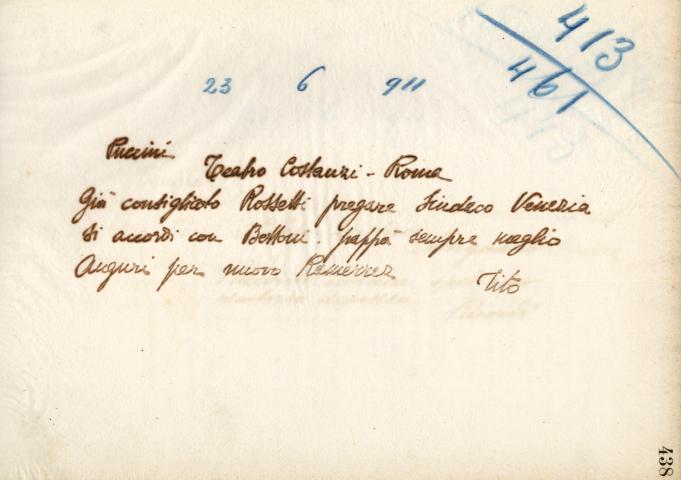 413
461
23 6 911
Puccini
Teatro Costanzi - Roma
Già consigliato Rossetti pregare Sindaco Venezia
si accordi con Bottoni. pappà sempre meglio
Auguri per nuovo Ramerrez
Tito
Ricordi
438